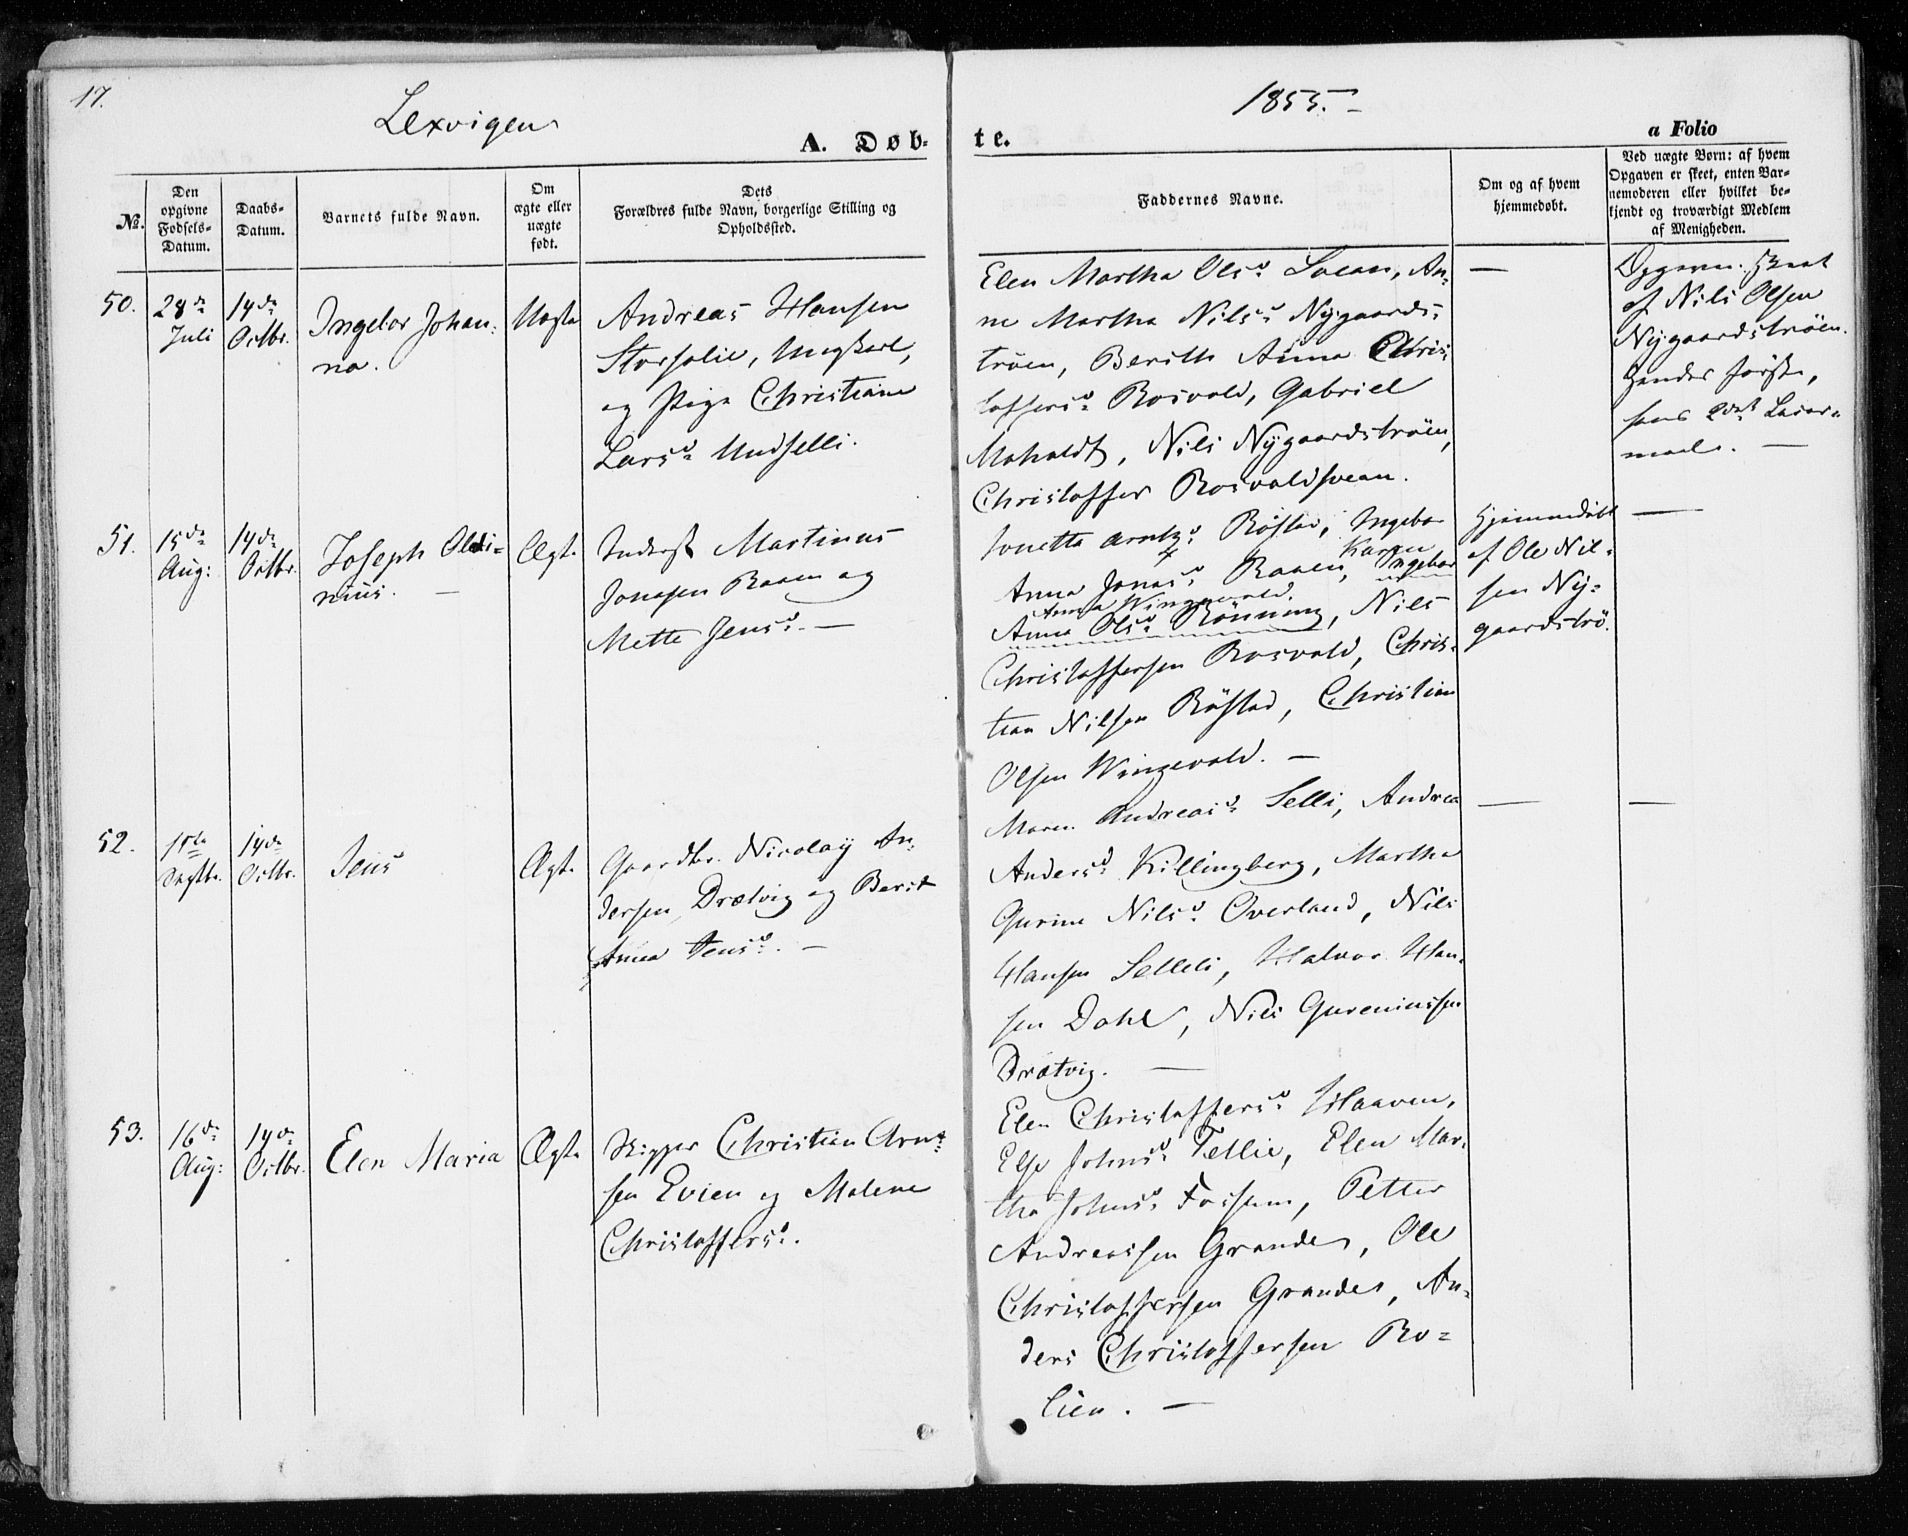 17.
Lexvigen
1855. –
A. Døb-
te.
a Folio
No.
Den
opgivne
Fødsels-
Datum.
Daabs-
Datum.
Barnets fulde Navn.
Om
ægte eller
uægte
født.
Dets
Forældres fulde Navn, borgerlige Stilling og
Opholdssted.
Faddernes Navne.
Om og af hvem
hjemmedøbt.
Ved uægte Børn: af hvem
Opgaven er skeet, enten Bar-
nemoderen eller hvilket be-
kjendt og troværdigt Medlem
af Menigheden.
50.
28de
Juli
14de
Octbr.
Ingebor Johan-
na.
Uægte
Andreas Hansen
Storsolie, Ungkarl,
og Pige Christiane
Larsd: Undselli.
Elen Martha Olsd: An-
ne Martha Nilsd: Nygaards-
trøen, Berith Anna Chris-
toffersd: Rosvold, Gabriel
Moholdt, Nils Nygaardstrøen,
Christoffer Rosvoldsveen.
—
Opgaven skeet
af Nils Olsen
Nygaardstrøen.
Hendes første,
hans 2det Leier-
maal. —
51.
15de
Aug:
14de
Octbr.
Joseph Oldi-
nius. —
Ægte
Inderst Martinus
Jonasen Raaen og
Mette Jensd: —
Jonetta Arntsd: Røstad, Ingebor
Anna Jonasd: Raaen, Karen Ingebor
Anna Wingevold.
Anna Olsd: Rønning, Nils
Christoffersen Rosvold, Chris-
tian Nilsen Røstad, Christian
Olsen Wingevold. —
Hjemmedøbt
af Ole Nil-
sen Ny-
gaardstrø.
—
52.
1ste
Septbr.
14de
Octbr.
Jens
Ægte
Gaardbr. Nicolay An-
dersen Drætvig og Berit
Anna Jensd: —
Maren Andreasd: Selli, Andrea
Andersd: Killingberg, Martha
Gurine Nilsd: Overland, Nils
Hansen Selleli, Halvor Han-
sen Dahl, Nils Gureniussen
Drætvig. —
—
—
53.
16de
Aug:
14de
Octbr.
Elen Maria
Ægte
Skipper Christian Arnt-
sen Evien og Malene
Christoffersd:
Elen Christoffersd: Haaven,
Else Johnsd: Tellie, Elen Mar-
tha Johnsd: Fossum, Petter
Andreassen Grande, Ole
Christoffersen Grande, An-
ders Christoffersen Ro-
lien. —